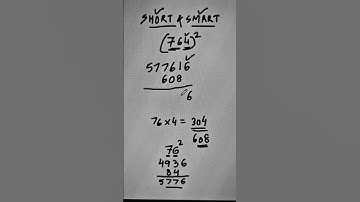 SHORT & SMART
(764)²
577616
608
6
76×4=304
608
76²
4936
84
5776